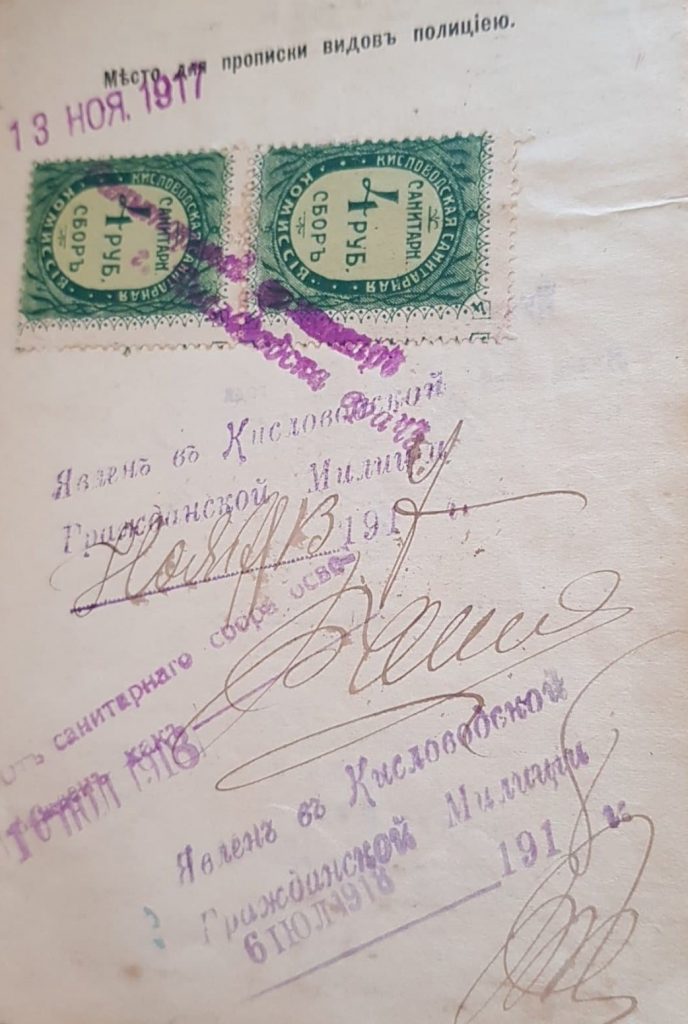 Мѣсто для прописки видовъ полиціею.
13 НОЯ. 1917
КИСЛОВОДСКАЯ САНИТАРНАЯ КОМИССІЯ
САНИТАРН.
4 РУБ.
СБОРЪ
КИСЛОВОДСКАЯ САНИТАРНАЯ КОМИССІЯ
САНИТАРН.
4 РУБ.
СБОРЪ
Явленъ въ Кисловодской
Гражданской Милиціи
Ноября 1917 г.
Отъ санитарнаго сбора осво-
какъ
1918
Явленъ въ Кисловодской
Гражданской Милиціи
191 г.
6 ІЮЛ 1918